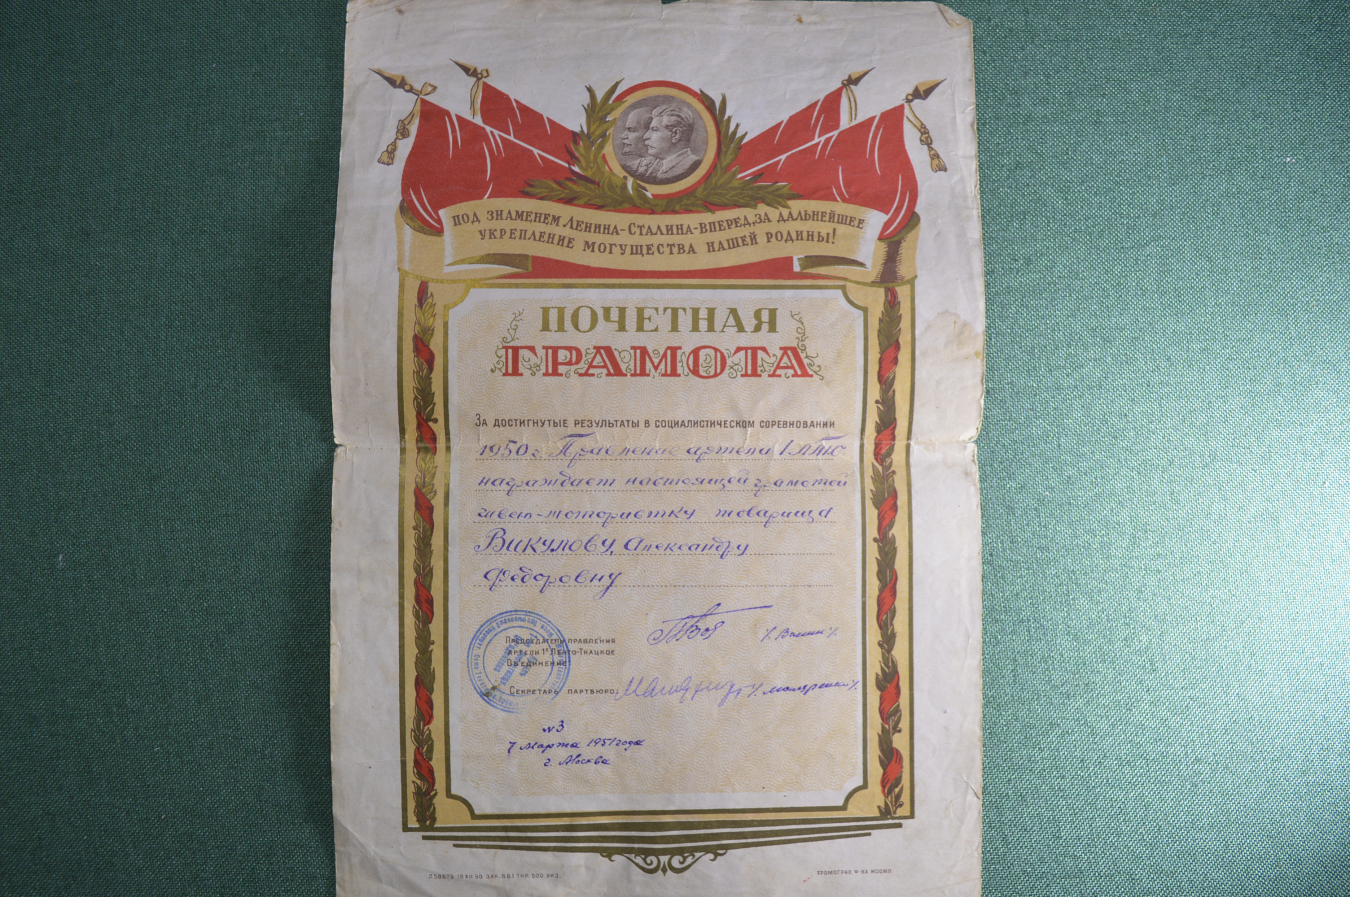 ПОД ЗНАМЕНЕМ ЛЕНИНА-СТАЛИНА-ВПЕРЕД, ЗА ДАЛЬНЕЙШЕЕ
УКРЕПЛЕНИЕ МОГУЩЕСТВА НАШЕЙ РОДИНЫ!
ПОЧЕТНАЯ
ГРАМОТА
ЗА ДОСТИГНУТЫЕ РЕЗУЛЬТАТЫ В СОЦИАЛИСТИЧЕСКОМ СОРЕВНОВАНИИ
1950 г. Правление артели
награждает настоящей грамотой
швею-мотористку товарища
Викулову, Александру
Федоровну
ПРЕДСЕДАТЕЛЬ ПРАВЛЕНИЯ
АРТЕЛИ 1Е ЛЕНТО-ТКАЦКОЕ
ОБЪЕДИНЕНИЕ
СЕКРЕТАРЬ ПАРТБЮРО:
№3
7 Марта 1951 года
г. Москва
ХРОМОГРАФ Ф-КА МОСМП